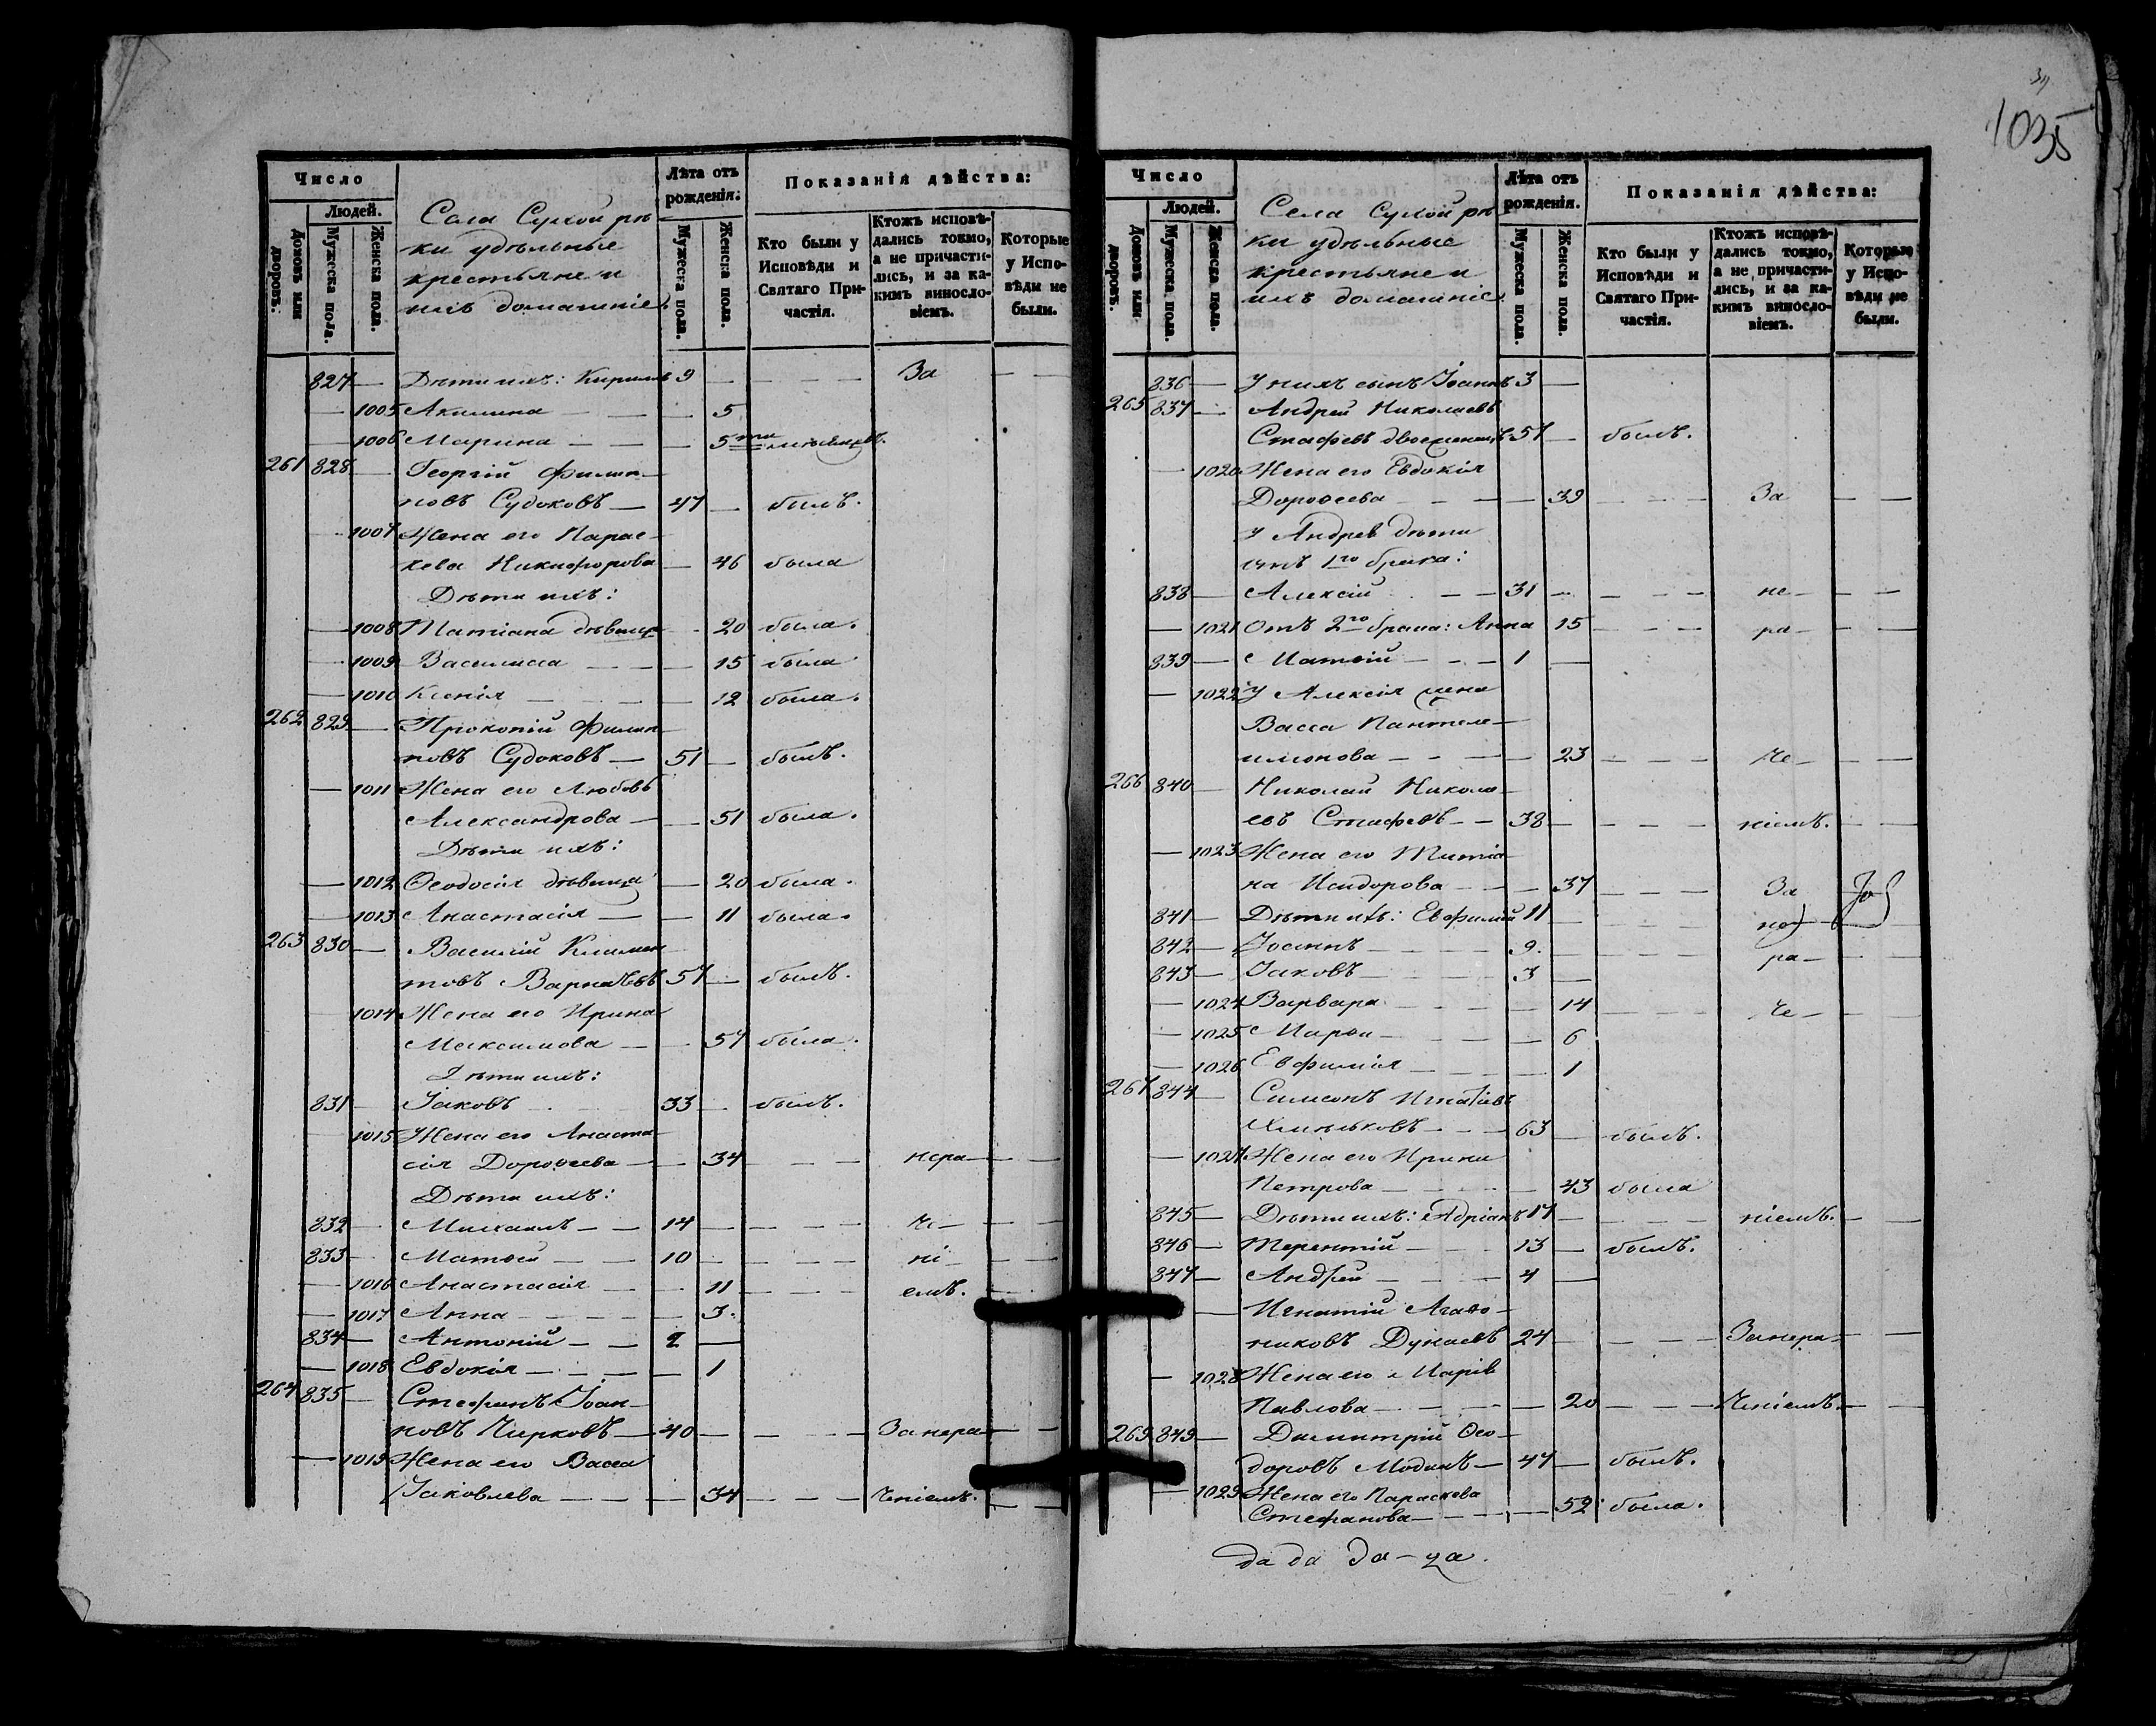 Число
Людей.
Домовъ или дворовъ.
Мужеска пола.
Женска пола.
Села Сухой рѣ
ки удѣльные
крестьяне и
ихъ домашніе.
Лѣта отъ рожденія.
Мужеска пола.
Женска пола.
Показанія дѣйства:
Кто были у Исповѣди и Святаго Причастія.
Ктожъ исповѣдались токмо, а не причастились, и за какимъ винословіемъ.
Которые у Исповѣди не были.
827 — Дѣти ихъ: Кириллъ 9 — — — — За — —
— 1005 Акилина — — — 5
— 1006 Марина — — — 5ти мѣсяцевъ.
261 828 — Георгій Филип-
повъ Судоковъ — 47 — былъ.
— 1007 Жена его Парас-
кева Никифорова — 46 была
Дѣти ихъ:
— 1008 Татіана дѣвица — 20 была.
— 1009 Василисса — — — 15 была
— 1010 Ксенія — — — 12 была.
262 829 — Прокопій Филип-
повъ Судоковъ — 51 — былъ.
— 1011 Жена его Любовь
Александрова — — 51 была.
Дѣти ихъ:
— 1012 Ѳеодосія дѣвица — 20 была.
— 1013 Анастасія — — 11 была.
263 830 — Василій Климен-
товъ Варнаевъ 57 — былъ.
1014 Жена его Ирина
Максимова — — 57 была.
Дѣти ихъ:
831 — Іаковъ — — 33 — былъ.
— 1015 Жена его Анаста-
сія Дороѳеева — — 34 — — — нера — —
Дѣти ихъ:
832 — Михаилъ — — 14 — — — — че — — —
833 — Матѳей — — 10 — — — — ні — — —
— 1016 Анастасія — — 11 — — — емъ. —
— 1017 Анна — — — — 3.
834 — Антоній — — 2 —
— 1018 Евдокія — — — — 1
264 835 — Стефанъ Іоан-
новъ Чирковъ — 40 — — — — За нера — —
— 1019 Жена его Васса
Іаковлева — — — 34 — — — Ченіемъ. — —
1035
Число
Людей.
Домовъ или дворовъ.
Мужеска пола.
Женска пола.
Села Сухой рѣ
ки удѣльные
крестьяне и
ихъ домашніе
Лѣта отъ рожденія.
Мужеска пола.
Женска пола.
Показанія дѣйства:
Кто были у Исповѣди и Святаго Причастія.
Ктожъ исповѣдались токмо, а не причастились, и за какимъ винословіемъ.
Которые у Исповѣди не были.
836 — У нихъ сынъ Іоаннъ 3 —
265 837 — Андрей Николаевъ
Стафеевъ двоеженецъ 57 — былъ.
— 1020 Жена его Евдокія
Дороѳеева — — — 39 — — — За — —
У Андрея дѣти
отъ 1го брака:
838 — Алексій — — 31 — — — — не — — —
— 1021 Отъ 2го брака: Анна 15 — — — ра — — —
839 — Матѳій — — — 1 —
— 1022 У Алексія жена
Васса Пантеле-
имонова — — — 23 — — — Че — — —
266 840 — Николай Никола-
евъ Стафеевъ — — 38 — — — — ніемъ. — —
— 1023 Жена его Татіа-
на Исидорова — — — 37 — — — За
841 — Дѣти ихъ: Евфимій 11 — — — — не
842 — Іоаннъ — — — 9. — — — — ра — — —
843 — Іаковъ — — — 3 —
— 1024 Варвара — — — — 14 — — — Че — — —
— 1025 Марѳа — — — — 6
— 1026 Евфимія — — — — 1
267 844 — Симеонъ Игнатіевъ
Хмѣльковъ — — — 63 — былъ.
— 1027 Жена его Ирина
Петрова — — — — 43 была
845 — Дѣти ихъ: Адріанъ 17 — — — — ніемъ. — —
846 — Терентій — — 13 — былъ.
847 — Андрей — — — 4 —
— Игнатій Агаѳо-
никовъ Дунаевъ 24 — — — — Занера — —
— 1028 Жена его Марія
Павлова — — — — 20 — — — Ченіемъ. — —
269 849 — Димитрій Ѳео-
доровъ Модинъ — 47 — былъ.
— 1029 Жена его Параскева
Стефанова — — — — 52 была.